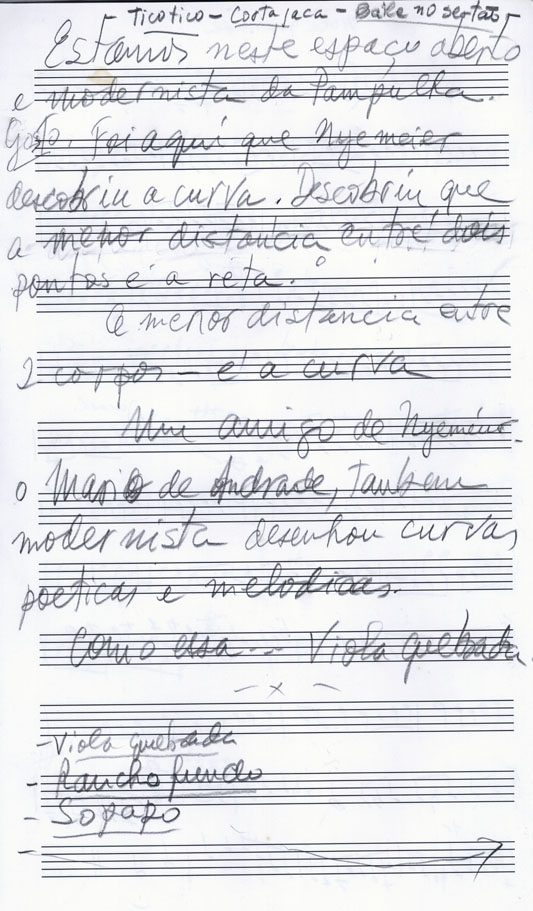 - Ticotico - Corta jaca - Baile no sertão -
Estamos neste espaço aberto
e modernista da Pampulha.
Foi aqui que Nyemeier
descobriu a curva. Descobriu que
a menor distancia entre dois
pontos é a reta.
A menor distancia entre
2 corpos - é a curva
Um amigo de Nyemeier -
o Mario de Andrade, tambem
modernista desenhou curvas
poeticas e melodicas.
Como essa... Viola quebrada.
- x -
- Viola quebrada
- Rancho fundo
- Sopapo
-